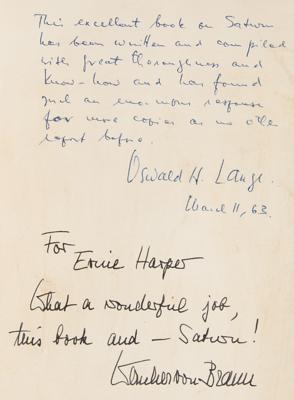 This excellent book on Saturn
has been written and compiled
with great thoroughness and
know-how and has found
such an enormous response
for more copies as no other
report before.
Oswald H. Lange.
March 11, 63.
For
Ernie Harper
What a wonderful job,
this book and — Saturn!
Wernher von Braun